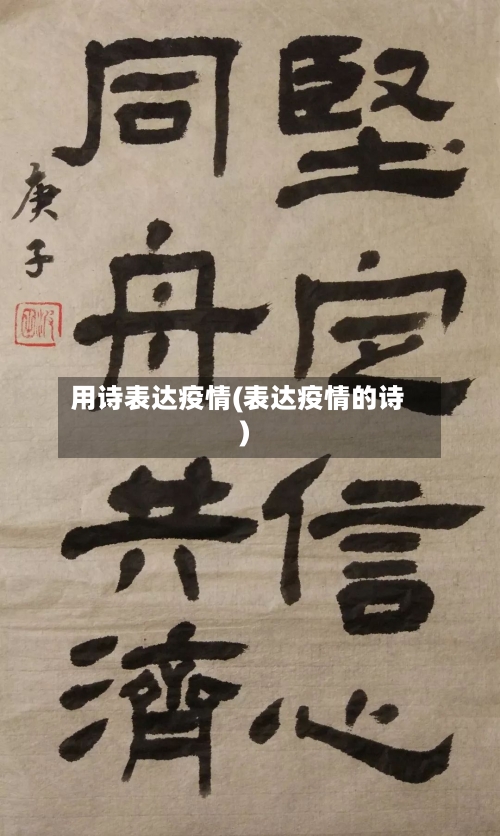 堅定信心
同舟共濟
庚子
用诗表达疫情(表达疫情的诗
)